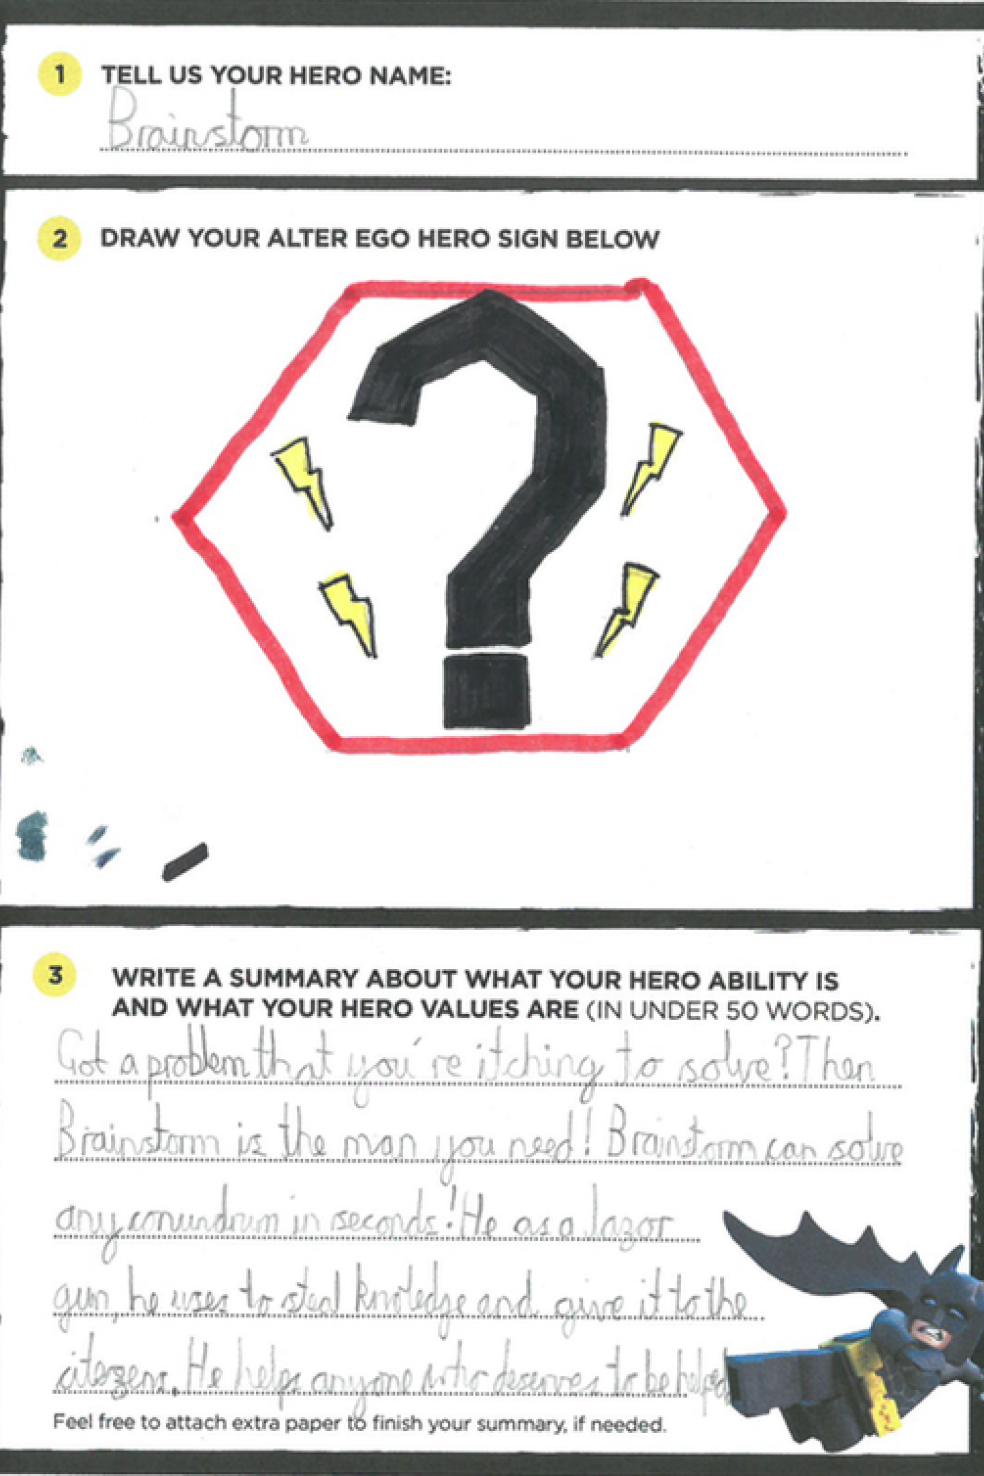 1 TELL US YOUR HERO NAME:
Brainstorm
2 DRAW YOUR ALTER EGO HERO SIGN BELOW
?
3 WRITE A SUMMARY ABOUT WHAT YOUR HERO ABILITY IS
AND WHAT YOUR HERO VALUES ARE (IN UNDER 50 WORDS).
Got a problem that you're itching to solve? Then
Brainstorm is the man you need! Brainstorm can solve
any conundrum in seconds! He as a lazor
gun, he uses to steal knoledge and give it to the
citezens. He helps anyone who deserves to be helped
Feel free to attach extra paper to finish your summary, if needed.